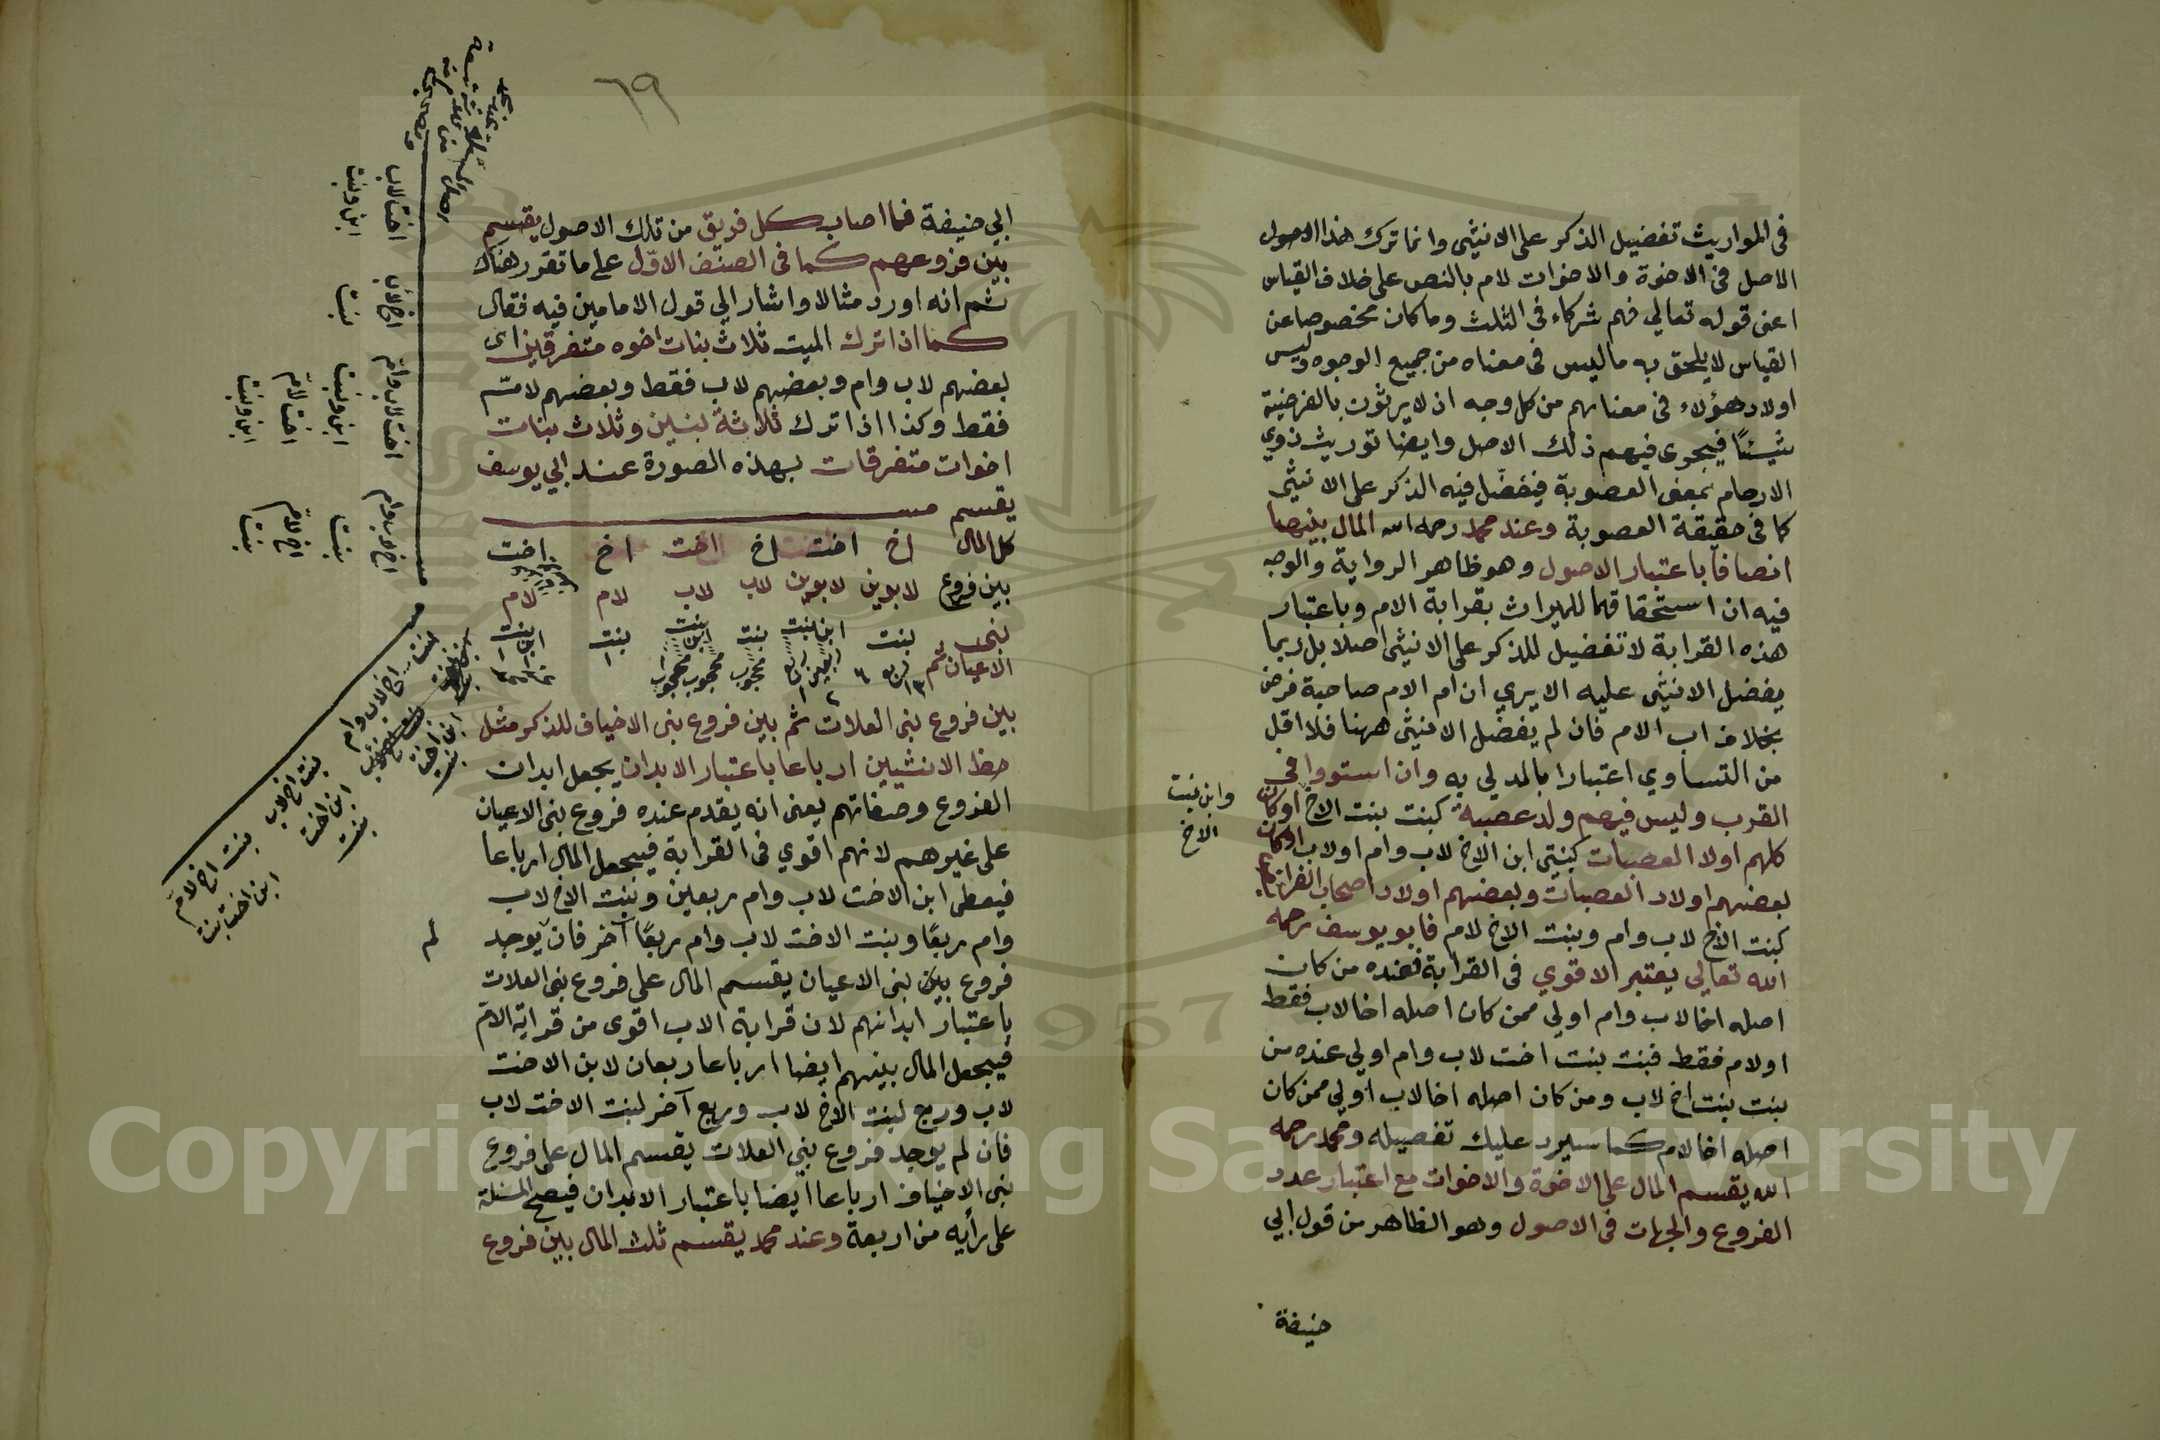 في المواريث تفضيل الذكر على الانثى وانما ترك هذا الاصول
الاصل في الاخوة والاخوات لام بالنص على خلاف القياس
اعنى قوله تعالي فهم شركاء في الثلث وما كان مخصوصا عن
القياس لا يلحق به ما ليس في معناه من جميع الوجوه وليس
اولاد هؤلاء في معناهم من كل وجه اذ لا يرثون بالفرضية
شيئًا فيجرى فيهم ذلك الاصل وايضا توريث ذوي
الارحام بمعنى العصوبة فيفضل فيه الذكر على الانثى
كما في حقيقة العصوبة وعند محمد رحمه الله المال بينهما
انصافا باعتبار الاصول وهو ظاهر الرواية والوجه
فيه ان استحقاقهما للميراث بقرابة الام وباعتبار
هذه القرابة لا تفضيل للذكر على الانثى اصلا بل ربما
يفضل الانثى عليه الا يري ان ام الام صاحبة فرض
بخلاف اب الام فان لم يفضل الانثى ههنا فلا اقل
من التساوي اعتبارا بالمدلي به وان استووا في
القرب وليس فيهم ولد عصبة كبنت بنت الاخ او كان
وابن بنت
الاخ
كلهم اولاد العصبات كبنتي ابن الاخ لاب وام او لاب او كان
بعضهم اولاد العصبات وبعضهم اولاد اصحاب الفرائض
كبنت الاخ لاب وام وبنت الاخ لام فابو يوسف رحمه
الله تعالي يعتبر الاقوي في القرابة فعنده من كان
اصله اخا لاب وام اولي ممن كان اصله اخا لاب فقط
او لام فقط فبنت بنت اخت لاب وام اولي عنده من
بنت بنت اخ لاب ومن كان اصله اخا لاب اولي ممن كان
اصله اخا لام كما سيرد عليك تفصيله ومحمد رحمه
الله يقسم المال على الاخوة والاخوات مع اعتبار عدد
الفروع والجهات في الاصول وهو الظاهر من قول ابي
حنيفة
٦٩
ابي حنيفة فما اصاب كل فريق من تلك الاصول يقسم
بين فروعهم كما في الصنف الاول على ما تقرر هناك
ثم انه اورد مثالا واشار الي قول الامامين فيه فقال
كما اذا ترك الميت ثلاث بنات اخوه متفرقين اى
بعضهم لاب وام وبعضهم لاب فقط وبعضهم لام
فقط وكذا اذا ترك ثلاثة بنين وثلاث بنات
اخوات متفرقات بهذه الصورة عند ابي يوسف
يقسم
كل المال اخ اخت اخ اخت اخ اخت
بين فروع لابوين لابوين لاب لاب لام لام
بنى بنت ابن بنت بنت ابن بنت بنت ابن بنت
الاعيان ثم محجوب محجوب محجوب
بين فروع بنى العلات ثم بين فروع بنى الاخياف للذكر مثل
حظ الانثيين ارباعا باعتبار الابدان يجعل ابدان
الفروع وصفاتهم يعنى انه يقدم عنده فروع بنى الاعيان
على غيرهم لانهم اقوي في القرابة فيجعل المال ارباعا
فيعطى ابن الاخت لاب وام ربعين وبنت الاخ لاب
وام ربعًا وبنت الاخت لاب وام ربعًا آخر فان يوجد
لم
فروع بين بنى الاعيان يقسم المال على فروع بنى العلات
باعتبار ابدانهم لان قرابة الاب اقوى من قرابة الام
فيجعل المال بينهم ايضا ارباعا ربعان لابن الاخت
لاب وربع لبنت الاخ لاب وربع آخر لبنت الاخت لاب
فان لم يوجد فروع بني العلات يقسم المال على فروع
بنى الاخياف ارباعا ايضا باعتبار الابدان فيصح المسئلة
على رأيه من اربعة وعند محمد يقسم ثلث المال بين فروع
اخ لاب وام
بنت
اخت لاب وام
ابن وبنت
اخ لاب
بنت
اخت لاب
ابن وبنت
اخ لام
بنت
اخت لام
ابن وبنت
بنت اخ لاب وام
ابن اخت
بنت
بنت اخ لاب
ابن اخت
بنت
بنت اخ لام
ابن اخت بنت
Copyright © King Saud University
1957